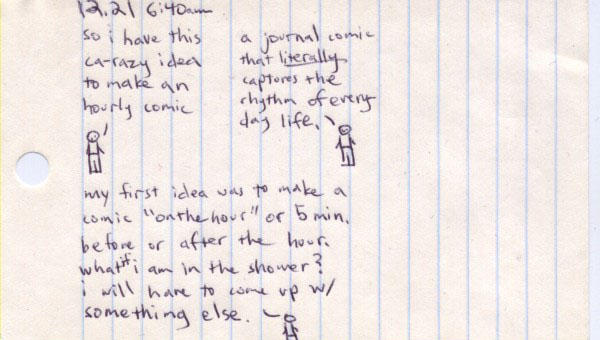 12.21 6:40am
so i have this
ca-razy idea
to make an
hourly comic
a journal comic
that literally
captores the
rhythm of every
day life.
my first idea was to make a
comic "on the hour" or 5 min.
before or after the hour.
what if i am in the shower?
i will have to come up w/
something else.